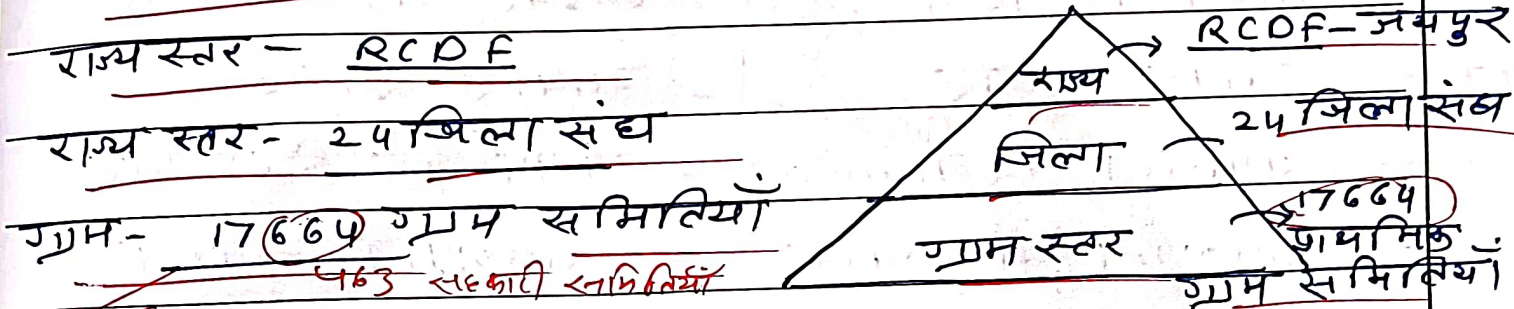 राज्य स्तर - RCDF
राज्य स्तर - 24 जिला संघ
ग्राम - 17664 ग्राम समितियाँ
463 सहकारी समितियाँ
राज्य → RCDF - जयपुर
जिला - 24 जिला संघ
ग्राम स्तर → 17664
प्राथमिक
ग्राम समितियाँ